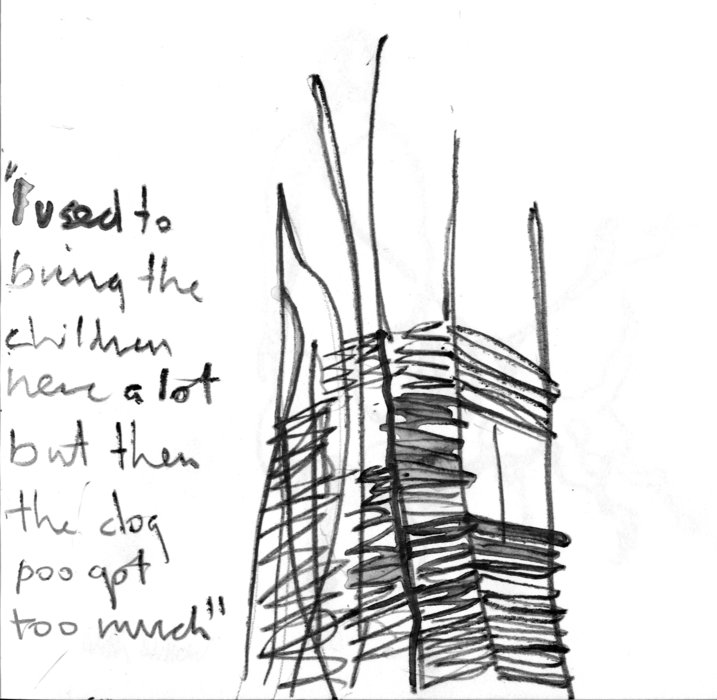 "I used to
bring the
children
here a lot
but then
the dog
poo got
too much"